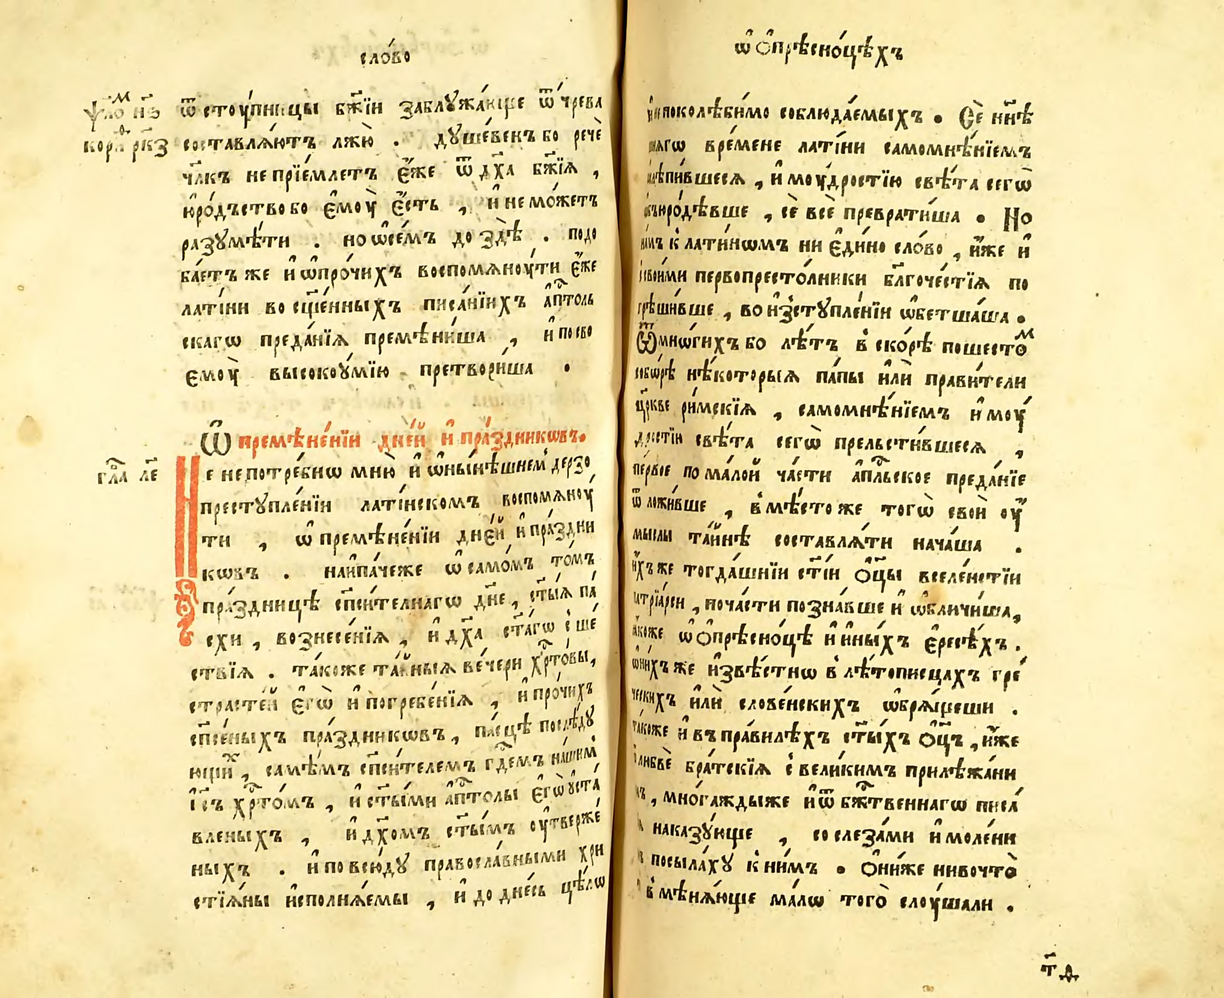 сло́во
ѱло́м н҃з
кори҃н рк҃з
ѿстоу́пницы бж҃їи заблꙋжа́юще ѿ чре́ва
составлѧ́ютъ лжю̀ . дꙋше́венъ бо речѐ
чл҃къ не прїе́млетъ є҆́же ѿ дх҃а бж҃їѧ ,
ю҆ро́дъство бо є҆моу̀ є҆́сть , и҆ не мо́жетъ
разꙋмѣ́ти . но ѡ҆се́мъ до здѣ̀ . подо
ба́етъ же и҆ ѡ҆про́чихъ воспомѧноу́ти є҆́же
лати́ни во сщ҃е́нныхъ писа́нїихъ а҆пⷭ҇толь
скагѡ преда́нїѧ премѣни́ша , и҆ по сво
є҆моу̀ высокоу́мїю претвори́ша .
Ѡ҆ премѣне́нїи дне́й и҆ пра́здникѡвъ.
гла҃ л҃е
Не непотре́бнѡ мню̀ и҆ ѡ҆ны́нѣшнем дерзо
преступле́нїи лати́нскомъ воспомѧноу́
ти , ѡ҆ премѣне́нїи дне́й и҆ пра́здни
кѡвъ . наи́паче же ѡ҆ само́мъ то́мъ
пра́здницѣ сп҃си́телнагѡ днѐ , ст҃ы́ѧ па́
схи , вознесе́нїѧ , и҆ дх҃а ст҃а́гѡ сше́
ствїѧ . та́коже та́йныѧ ве́чери хрⷭ҇то́вы,
страсте́й є҆гѡ̀ и҆ погребе́нїѧ , и҆ про́чихъ
сп҃се́ныхъ пра́здникѡвъ , па́сцѣ послѣ́дꙋ
ющих , самѣ́мъ сп҃си́телемъ гдⷭ҇емъ на́шимъ
і҆с҃ъ хрⷭ҇то́мъ , и҆ ст҃ы́ми а҆пⷭ҇толы є҆гѡ̀ оу҆ста́
вленыхъ , и҆ дх҃омъ ст҃ы́мъ оу҆твержє́
ныхъ . и҆ по всю́дꙋ правосла́вными хри
стїѧ́ны и҆сполнѧ́емы , и҆ до дне́сь цѣ́лѡ
ѡ҆ Ѻ҆прѣсно́цѣхъ
и҆ неполѣби́мо соблюда́емыхъ . Се́ нн҃ѣ
вре́мене лати́ни самомнѣ́нїемъ
, и҆ моу́дростїю свѣ́та сегѡ̀
, сѐ всѐ преврати́ша . Но
к лати́нѡмъ ни є҆ди́но сло́во , и҆́же и҆
свои́ми первопресто́лники бл҃гоче́стїѧ по
грѣши́вше , во и҆зступле́нїи ѡ҆бетша́ша .
Ѿ мнѡ́гихъ бо лѣ́тъ в ско́рѣ по шесто́м
собѡ́рѣ нѣ́которыѧ па́пы и҆лѝ прави́тели
цр҃кве ри́мскїѧ , самомнѣ́нїемъ и҆ моу́
дростїи свѣ́та сегѡ̀ прельсти́вшеся ,
пе́рвое по ма́лой ча́сти а҆пⷭ҇льское преда́нїе
ѿложи́вше , в мѣ́сто же тогѡ̀ свой оу҆́
мыслы та́йнѣ составлѧ́ти нача́ша .
и҆́хъже тогда́шнїи ст҃їи Ѻ҆ц҃ы̀ вселе́нстїи
патрїа́рси , поча́сти позна́вше и҆ ѡ҆бличи́ша,
ꙗ҆́коже ѡ҆ Ѻ҆прѣсно́цѣ и҆ и҆ны́хъ є҆ресе́хъ .
ѡ҆ ни́хъже и҆звѣ́стнѡ в лѣ́тописцахъ гре́
ческихъ и҆лѝ слове́нскихъ ѡ҆брѧ́щеши .
та́коже и҆ въ пра́вилѣхъ ст҃ы́хъ Ѻ҆ц҃ъ , и҆́же
бра́тскїѧ с вели́кимъ прилѣжа́ни
, мно́гаждыже и҆ ѿ бжⷭ҇твеннагѡ писа́
наказꙋ́юще , со слеза́ми и҆ моле́ни
посыла́хꙋ к ни́мъ . Ѻ҆ни́же ни во что̀
вмѣнѧ́юще ма́лѡ того̀ слоу́шали .
т҃д